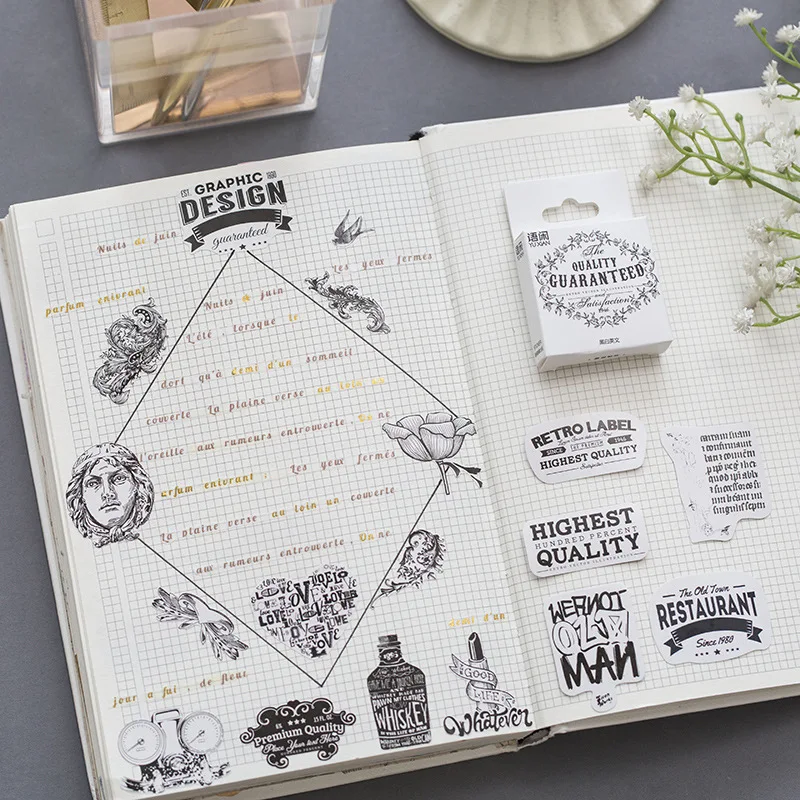 EST. GRAPHIC 1990
DESIGN
guaranteed
Nuits de juin
Les yeux fermés
parfum enivrant
Nuits de juin
L'été, lorsque le
dort qu'à demi d'un sommeil
couverte La plaine verse au loin un
l'oreille aux rumeurs entrouverte, On ne
arfum enivrant, Les yeux fermés
La plaine verse au loin un couverte
aux rumeurs entrouverte, On ne
LOVE
jour a fui, de fleur
demi d'un
Premium Quality
Place Your text Here
HUNDRED PERCENT
PAWN MY CLOTHES
WHISKEY
GOOD
LIFE
Whatever
语闲
YU XIAN
The
QUALITY
GUARANTEED
and
Satisfaction
黑白英文
RETRO LABEL
SINCE 1965
HIGHEST QUALITY
HIGHEST
HUNDRED PERCENT
QUALITY
RETRO VECTOR ILLUSTRATION
MAN
The Old Town
RESTAURANT
Since 1988